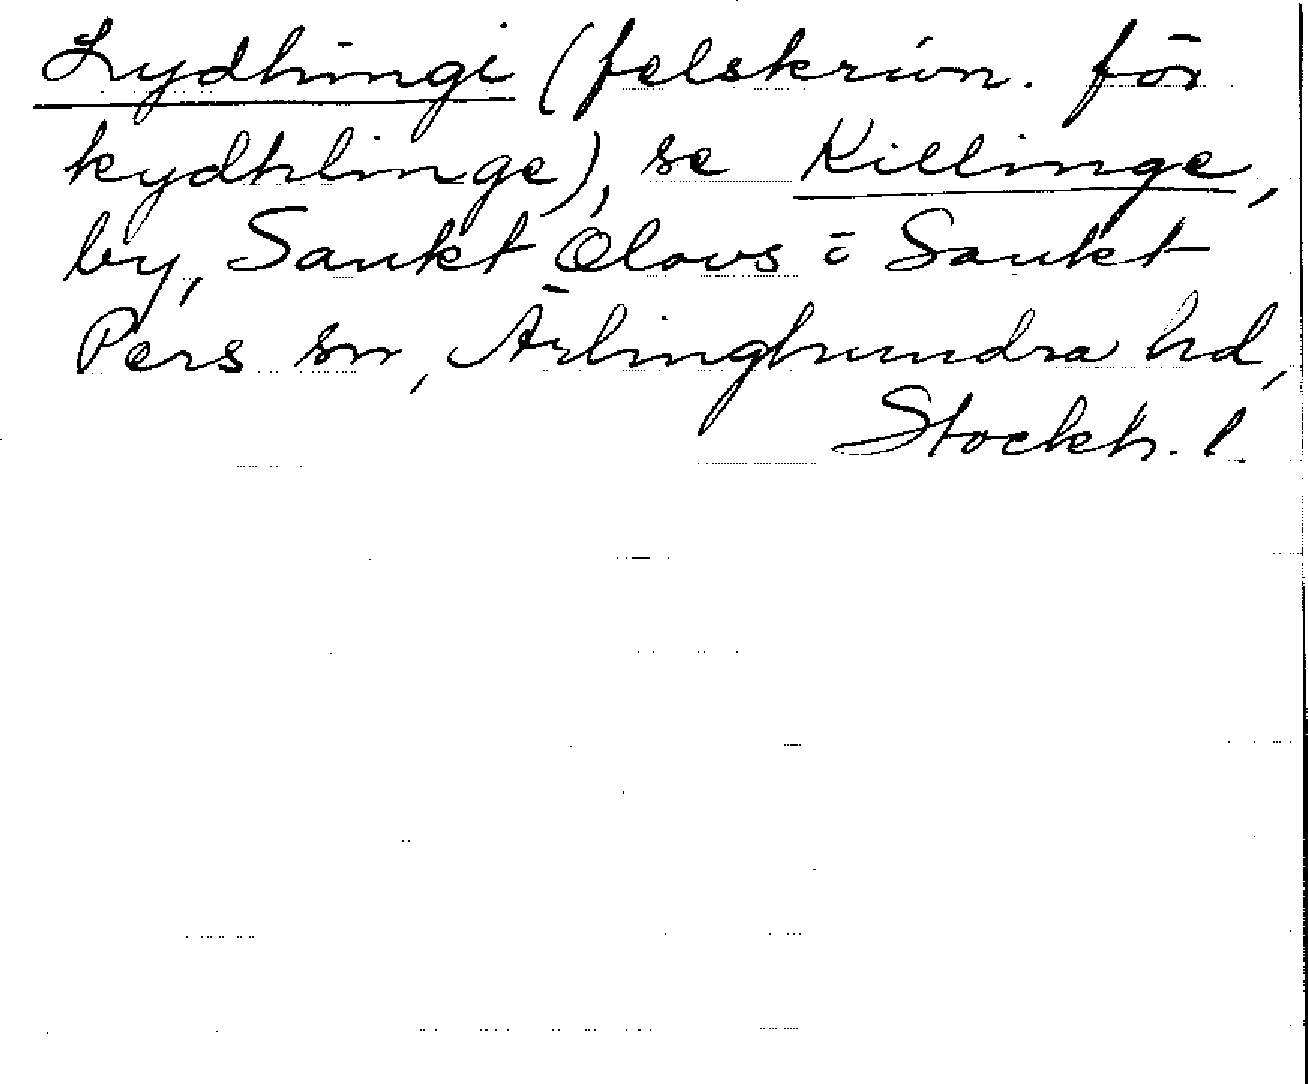 Lydhingi (felskrivn. för
kydhlinge), se Killinge,
by, Sankt Olovs = Sankt
Pers sn, Ärlinghundra hd,
Stockh. l.